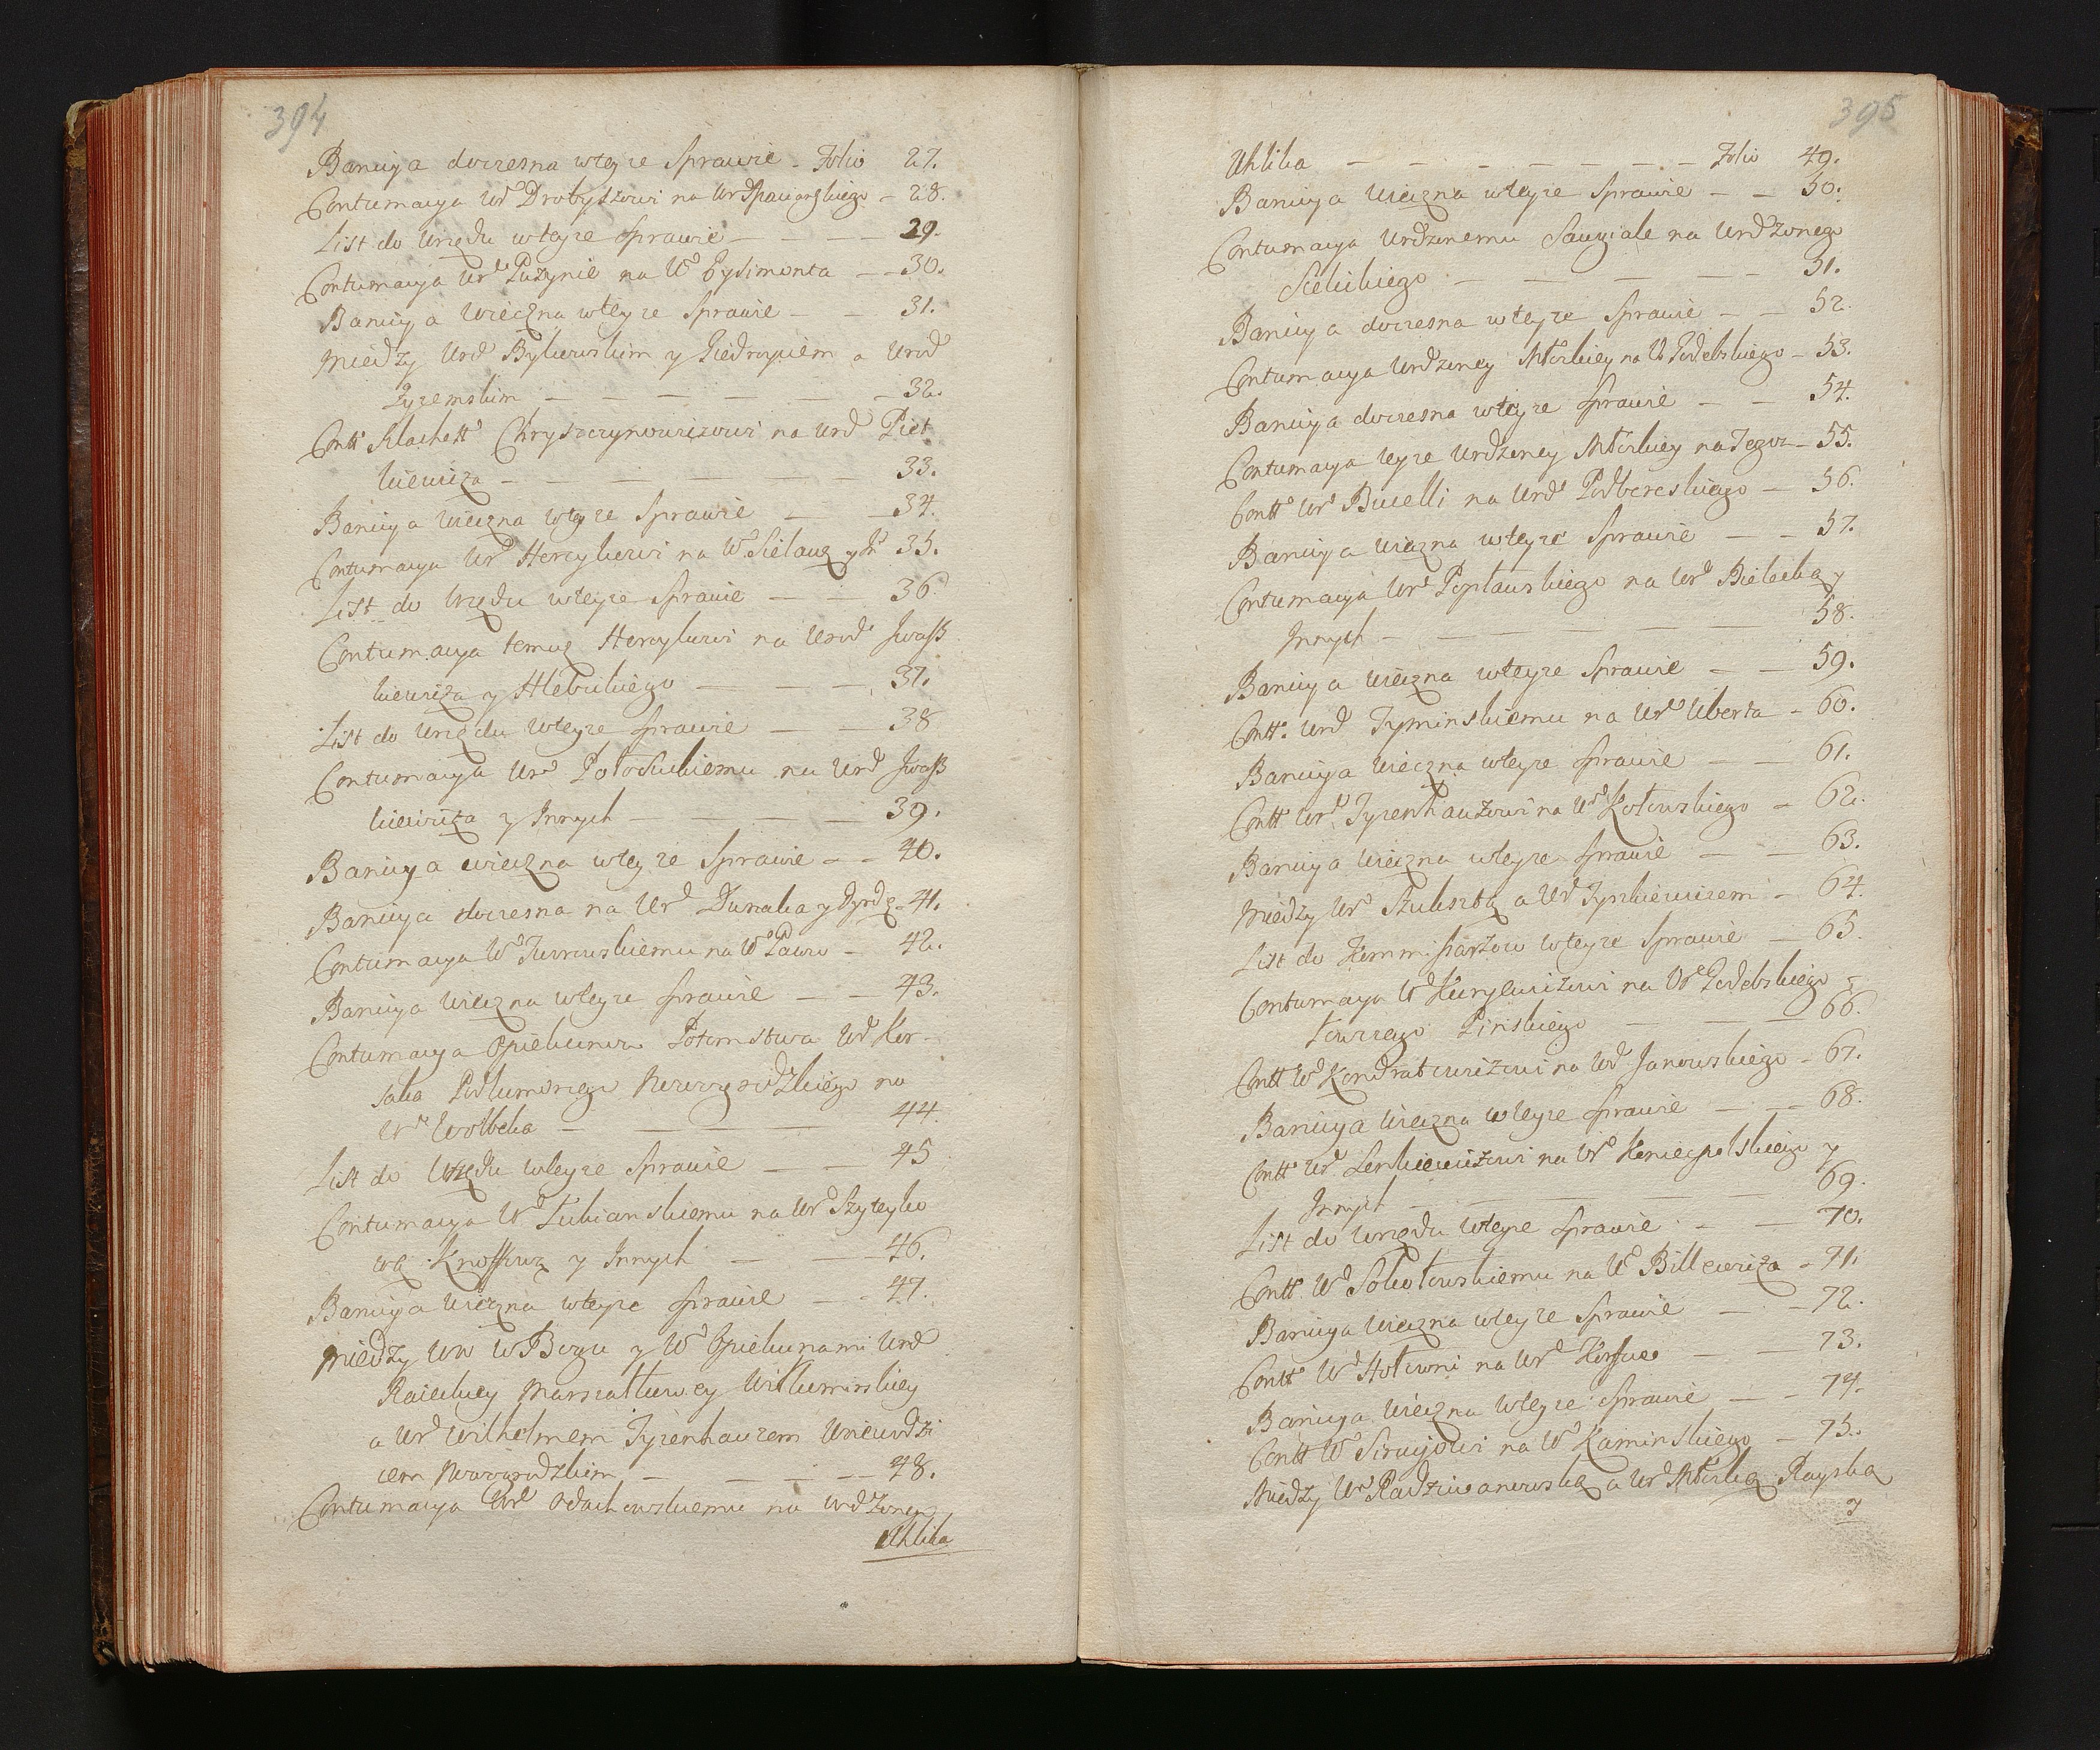 394
Banicya doczesna wteyże Sprawie - Folio 27.
Contumacya Ur Drobyszowi na Ur - 28.
List do Urzędu wteyże Sprawie - 29.
Contumacya Ur Puzynie na W Eysimonta - 30.
Banicya wieczna wteyże Sprawie - - 31.
Między Urd Bykowskim y Giedroyciem a Urod
Zyzemskim - - - - - 32.
Contt Szlachett Chryszczynowiczowi na Urd Piet
kiewicza - - - - - 33.
Banicya wieczna wteyże Sprawie - - 34.
Contumacya Ur Horcykowi na W y In 35.
List do Urzędu wteyże Sprawie - - 36.
Contumacya temuż Horcykowi na Urod Iwasz
kiewicza y Hlebickiego - - - 37.
List do Urzędu wteyże Sprawie - - 38
Contumacya Urd na Urd Iwasz
kiewicza y Innych - - - - 39.
Banicya wieczna wteyże Sprawie - - 40.
Banicya doczesna na Urd Dunaka y - 41.
Contumacya W na W - 42.
Banicya wieczna wteyże Sprawie - - 43.
Contumacya Opiekunom Potomstwa Urd Kor-
saka Podkomorzego Nowogrodzkiego na
Ur Wolbeka - - - 44.
List do Urzędu wteyże Sprawie - - 45
Contumacya W Łukianskiemu na Ur
y Innych - - 46.
Banicya wieczna wteyże Sprawie - - 47.
Między UW W Bogu y W Opiekunami Urd
Raieckiey Marszałkowey Wiłkomirskiey
a Ur Wilhelmem Tyzenhauzem Woiewodzi
cem Nowogrodzkim - - - - 48.
Contumacya Urd Odachowskiemu na Urdzonego
Uhlika
395
Uhlika - - - - - - - - Folio 49.
Banicya wieczna wteyże Sprawie - - 50.
Contumacya Urdzonemu na Urdzonego
Sielickiego - - - - - 51.
Banicya doczesna wteyże Sprawie - - 52.
Contumacya Urdzoney na W Godebskiego - 53.
Banicya doczesna wteyże Sprawie - - 54.
Contumacya teyże Urdzoney na Tegoż - 55.
Contt Ur Bucelli na Urd Podbereskiego - 56.
Banicya wieczna wteyże Sprawie - - 57.
Contumacya Ur Popławskiego na Urd Bielacka y
Innych - - - - - 58.
Banicya wieczna wteyże Sprawie - - 59.
Contt. Urd Tyminskiemu na Urd Uberta - 60.
Banicya wieczna wteyże Sprawie - - 61.
Contt Urd Tyzenhauzowi na Urd Kotowskiego - 62.
Banicya wieczna wteyże Sprawie - - 63.
Między Ur Szuksztą a Ur Tyszkiewiczem - 64.
List do Kommissarzow wteyże Sprawie - 65.
Contumacya W na Ur Godebskiego
Łowczego Pinskiego - - - 66.
Contt W Kondratowiczowi na Urd Janowskiego - 67.
Banicya wieczna wteyże Sprawie - - 68.
Contt Urd Lenkiewiczowi na Ur Koniecpolskiego y
Innych - - - - - 69.
List do Urzędu wteyże Sprawie - - 70.
Contt W Sokołowskiemu na W Billewicza - 71.
Banicya wieczna wteyże Sprawie - - 72.
Contt W Hołowni na Urd - - 73.
Banicya wieczna wteyże Sprawie - - 74.
Contt W na W Kaminskiego - 75.
Między Ur Radziwanowską a Ur Rayską
y